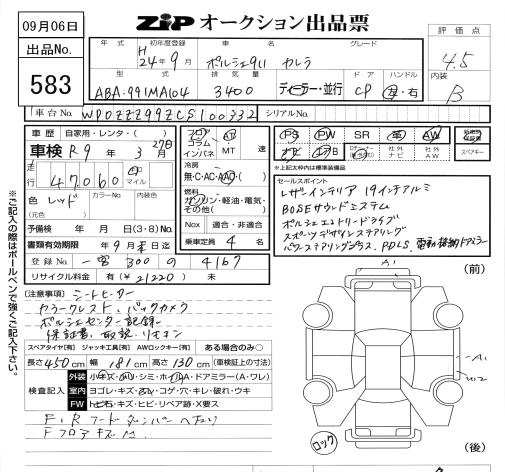 09月06日
ZIP オークション出品票
出品No.
583
年式 初年度登録 車名 グレード
H 24年9月 ポルシェ911 カレラ
型式 排気量 ドア ハンドル
ABA-991MA104 3400 ディーラー・並行 CP 右・右
評価点
4.5
内装
B
車台No. WP0ZZZ99ZCS100332 シリアルNo.
車歴 自家用・レンタ・( )
車検 R9年3月27日
走行 47060 マイル
色 レッド カラーNo. 内装色
(元色)
予備検 年 月 日 (3・8) No.
書類有効期限 9月末日迄
登録No. 300 の 4167
リサイクル料金 有(¥21220) 未
フロア AT
コラム
インパネ MT 速
冷房
無・C・AC・AAC・( )
燃料
ガソリン・軽油・電気・
その他( )
Nox 適合・非適合
乗車定員 4名
PS PW SR 革 AW
ナビ TV エアB 社外ナビ 社外AW
スペアキー
*上記太枠内は標準装備品
セールスポイント
レザーインテリア 19インチアルミ
BOSEサウンドシステム
ポルシェエントリードライブ
スポーツデザインステアリング
パワーステアリングプラス、PDLS、電動格納ドアミラー
※ご記入の際はボールペンで強くご記入下さい。
[注意事項] シートヒーター
カラークレスト、バックカメラ
ポルシェセンター記録簿
保証書、取説、リモコン
スペアタイヤ[有] ジャッキ工具[有] AWロックキー[有] ある場合のみ○
長さ450cm 幅181cm 高さ130cm (車検証上の寸法)
検査記入
外装 小キズ・ ・シミ・ ・A・ドアミラー(A・ワレ)
室内 ヨゴレ・キズ・ ・コゲ・穴・キレ・破れ・ウキ
FW トビ石・キズ・ヒビ・リペア跡・X要ス
F、Rフードダンパーヘタリ
Fフロアキズ
(前)
A1
A1
W2
ロック
(後)